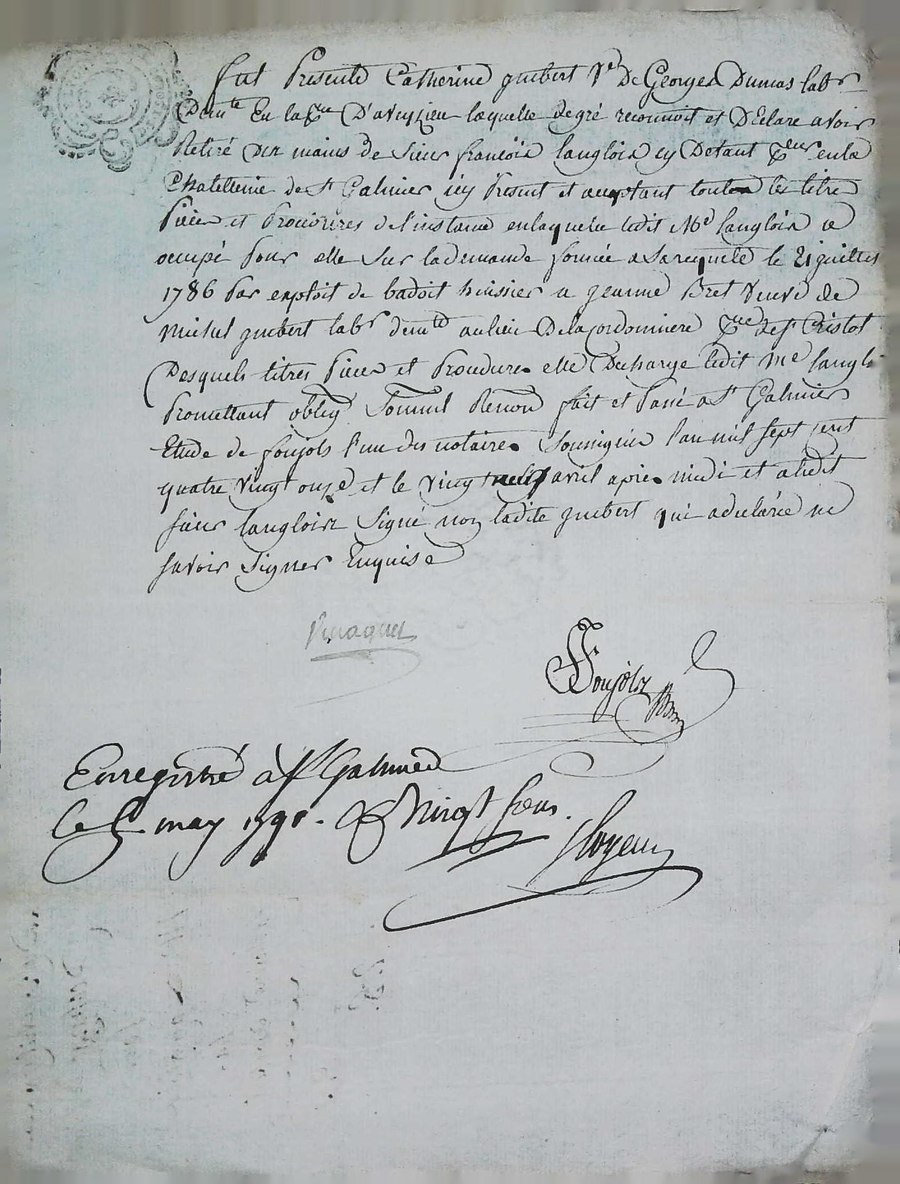 fut Presente Catherine guibert Ve De Georges Dumas labr
Demte En la psse D'aveyzieu laquelle de gré reconnoit et Déclare avoir
Retiré des mains de Sieur françois langlois cy Devant pcur en la
Chatellenie de St Galmier icy Présent et acceptant toutes les titres
Pièces et Procedures de l'instance en laquelle ledit Me langlois a
occupé Pour elle Sur la demande formée a Sa requete le 21 juillet
1786 Par exploit de badoit huissier a jeanne Bret veuve de
Michel guibert labr demte au lieu De la Cordonniere psse de St Cristol
Desquels titres Pièces et Procedures elle Decharge ledit Me langlois
Promettant obligt Soumis Renon fait et Passé a St Galmier
Etude de foujols l'un des notaires Soussignés l'an mil sept cent
quatre vingt onze et le vingt neuf avril après midi et a ledit
sieur langlois Signé non ladite guibert qui a declaré ne
savoir Signer Enquise
Foujols
Enregistré à St Galmier
le may 1791. Vingt sous.